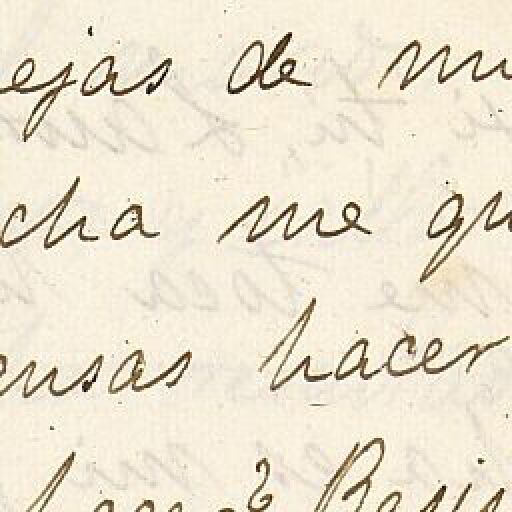 ejas de mi
cha me qu
ensas hacer